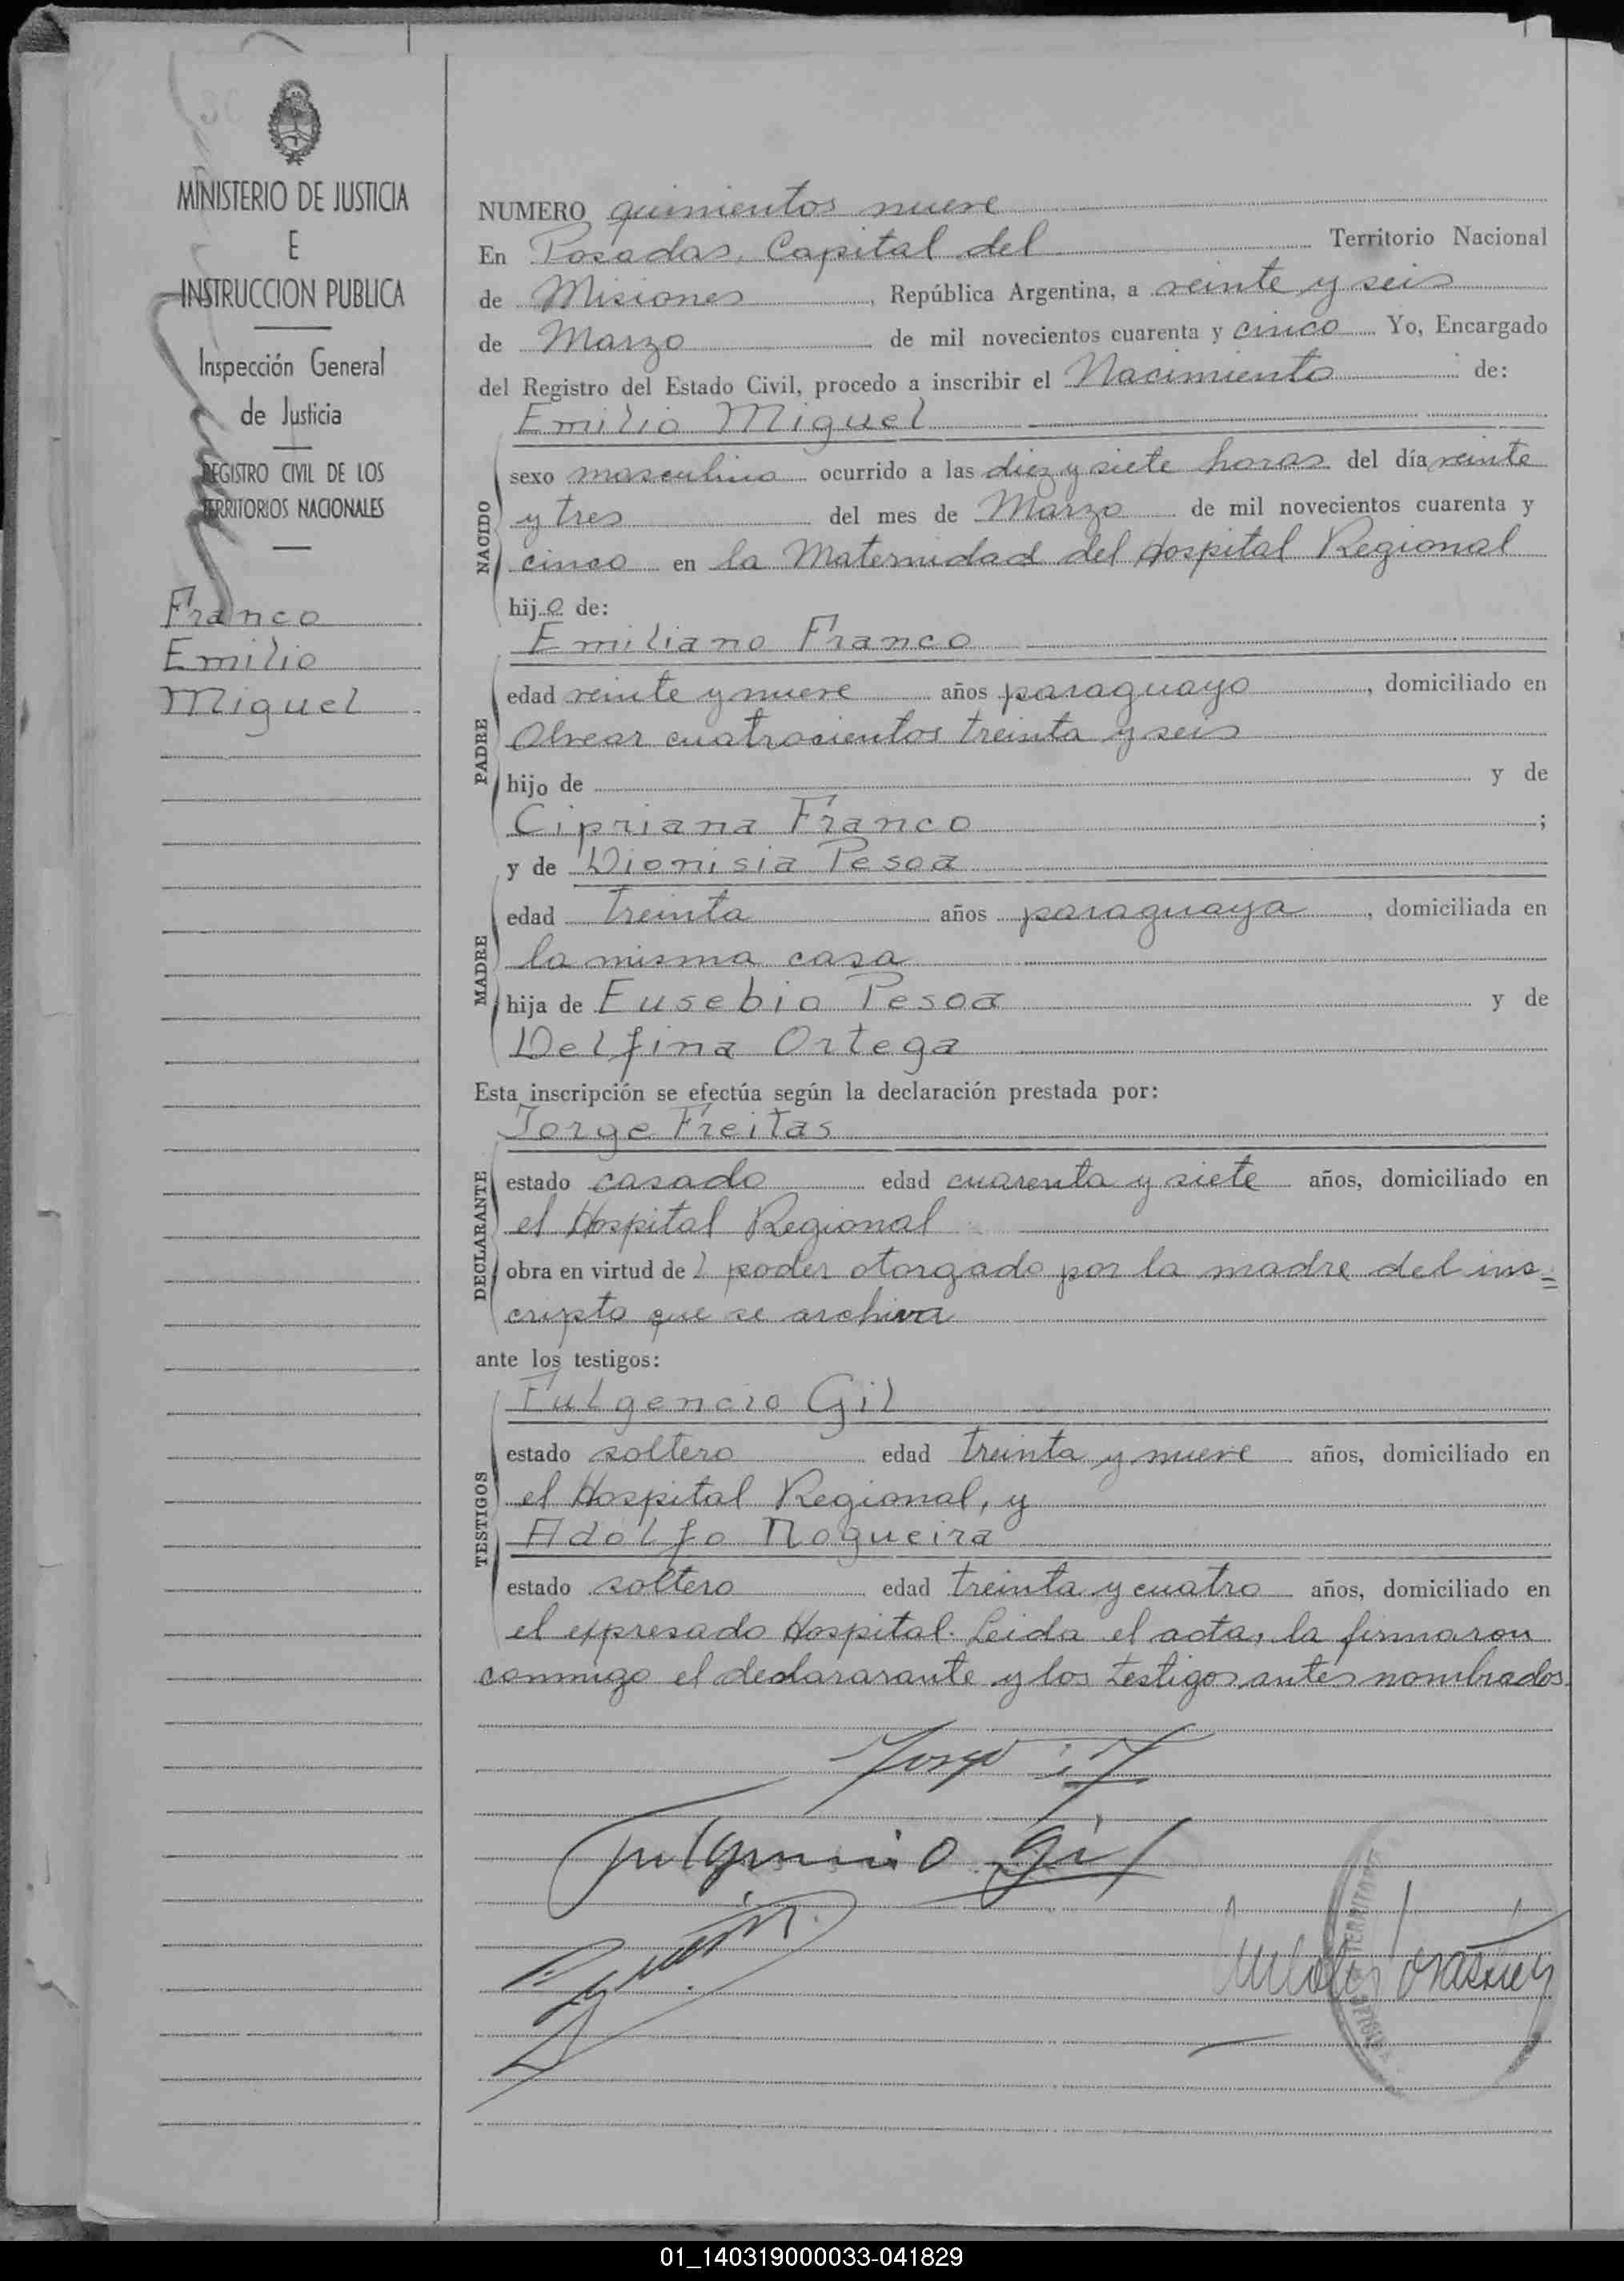 MINISTERIO DE JUSTICIA
E
INSTRUCCION PUBLICA
Inspección General
de Justicia
REGISTRO CIVIL DE LOS
TERRITORIOS NACIONALES
Franco
Emilio
Miguel
NUMERO quinientos nueve
En Posadas, Capital del Territorio Nacional
de Misiones, República Argentina, a veinte y seis
de Marzo de mil novecientos cuarenta y cinco Yo, Encargado
del Registro del Estado Civil, procedo a inscribir el Nacimiento de:
Emilio Miguel
NACIDO
sexo masculino ocurrido a las diez y siete horas del día veinte
y tres del mes de Marzo de mil novecientos cuarenta y
cinco en la Maternidad del Hospital Regional
hijo de:
Emiliano Franco
PADRE
edad veinte y nueve años paraguayo, domiciliado en
Alvear cuatrocientos treinta y seis
hijo de y de
Cipriana Franco;
y de Dionisia Pesoa
MADRE
edad treinta años paraguaya, domiciliada en
la misma casa
hija de Eusebio Pesoa y de
Delfina Ortega
Esta inscripción se efectúa según la declaración prestada por:
Jorge Freitas
DECLARANTE
estado casado edad cuarenta y siete años, domiciliado en
el Hospital Regional
obra en virtud del poder otorgado por la madre del ins=
cripto que se archiva
ante los testigos:
Fulgencio Gil
TESTIGOS
estado soltero edad treinta y nueve años, domiciliado en
el Hospital Regional, y
Adolfo Nogueira
estado soltero edad treinta y cuatro años, domiciliado en
el expresado Hospital. Leida el acta, la firmaron
conmigo el declararante y los testigos antes nombrados.
Jorge
Fulgencio Gil
01_140319000033-041829